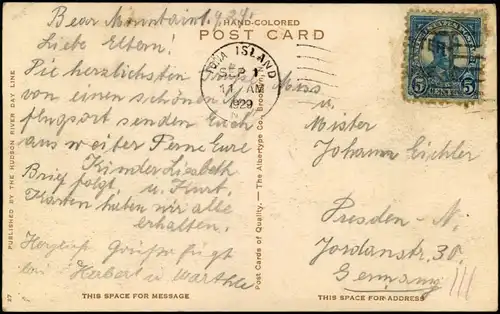 Bear Mountain 1.9.29.
HAND-COLORED
POST CARD
Liebe Eltern!
Die herzlichsten
von einen schönen
flugsort senden Euch
aus weiter Ferne Eure
Kinder Liesbeth
Brief folgt u. Kurt.
Karten haben wir alle
erhalten.
Herzliche Grüße fügt
bei Herbert u. Marthe
THIS SPACE FOR MESSAGE
PUBLISHED BY THE HUDSON RIVER DAY LINE
Post Cards of Quality. — The Albertype Co., Brooklyn,
IONA ISLAND
SEP 1
11 AM
1929
5 CENTS 5
u.
Mister
Johann Eichler
Dresden - N.
Jordanstr. 30.
Germany
THIS SPACE FOR ADDRESS